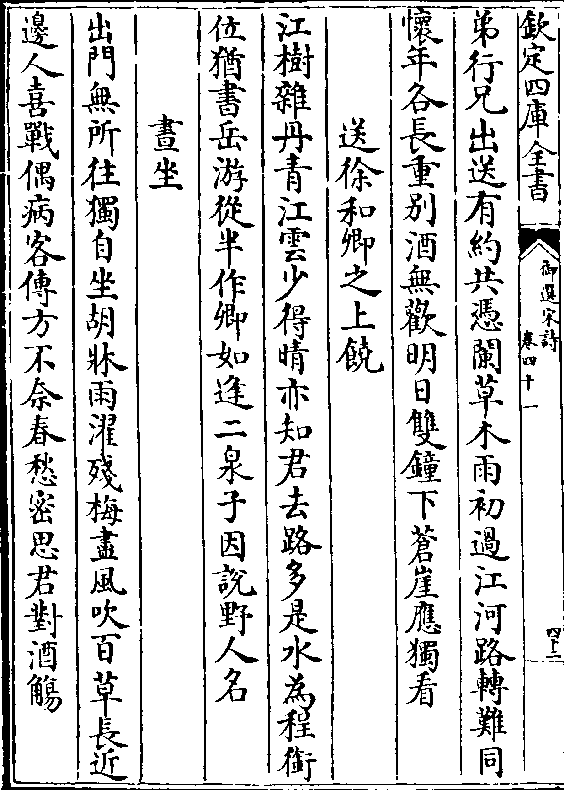 欽定四庫全書
御選宋詩
卷四十一
四十二
弟行兄出送有約共憑闌草木雨初過江河路轉難同
懷年各長重别酒無歡明日雙鐘下蒼崖應獨看
送徐和卿之上饒
江樹雜丹青江雲少得晴亦知君去路多是水為程銜
位猶書岳游從半作卿如逢二泉子因說野人名
晝坐
出門無所往獨自坐胡牀雨濯殘梅盡風吹百草長近
邊人喜戰偶病客傳方不奈春愁密思君對酒觴